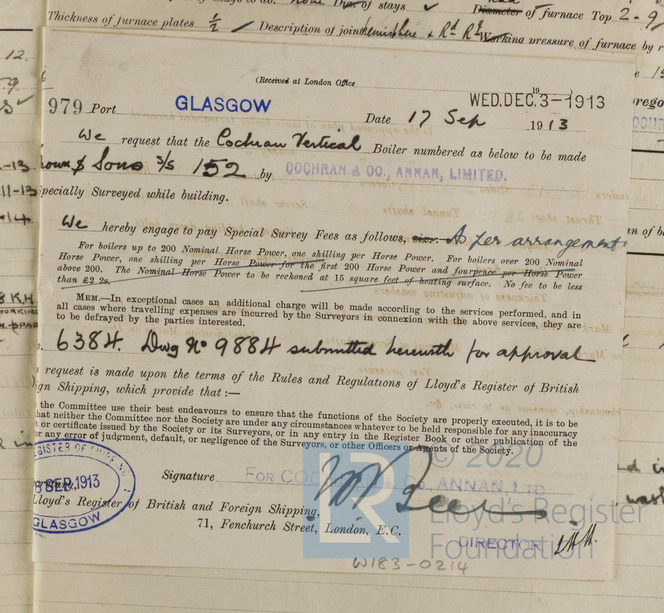 Thickness of furnace plates 1/2 Description of joint hemisphere & Rd Rg Working pressure of furnace by r
of stays Diameter of furnace Top 2-9
(Received at London Office
WED.DEC.3-1913
19
979 Port GLASGOW
Date 17 Sep 1913
We request that the Cochran Vertical Boiler numbered as below to be made
rown & Sons S/S 152 by COCHRAN & CO., ANNAN, LIMITED.
pecially Surveyed while building.
We hereby engage to pay Special Survey Fees as follows, viz.:— As per arrangement
For boilers up to 200 Nominal Horse Power, one shilling per Horse Power. For boilers over 200 Nominal
Horse Power, one shilling per Horse Power for the first 200 Horse Power and fourpence per Horse Power
above 200. The Nominal Horse Power to be reckoned at 15 square feet of heating surface. No fee to be less
than £2 2s.
MEM.—In exceptional cases an additional charge will be made according to the services performed, and in
all cases where travelling expenses are incurred by the Surveyors in connexion with the above services, they are
to be defrayed by the parties interested.
o. 6384. Dwg No 9884 submitted herewith for approval
request is made upon the terms of the Rules and Regulations of Lloyd's Register of British
ign Shipping, which provide that:—
the Committee use their best endeavours to ensure that the functions of the Society are properly executed, it is to be
hat neither the Committee nor the Society are under any circumstances whatever to be held responsible for any inaccuracy
t or certificate issued by the Society or its Surveyors, or in any entry in the Register Book or other publication of the
or any error of judgment, default, or negligence of the Surveyors, or other Officers or Agents of the Society.
8 SEP. 1913
GLASGOW
Signature FOR COCHRAN & CO., ANNAN, LTD
Lloyd's Register of British and Foreign Shipping,
71, Fenchurch Street, London, E.C.
DIRECTOR
W183-0214
© 2020
Lloyd's Register
Foundation